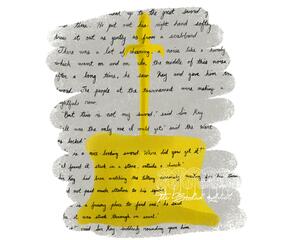 up to the great sword
time. He put out his right hand softly
drew it out as gently as from a scabbard
There was a lot of cheering, a noise like a hurdy
which went on and on. In the middle of this noise
after a long time, he saw Kay and gave him
sword. The people at the tournament were making a
frightful row.
But this is not my sword," said Sir Kay.
It was the only one I could get," said the Wart
is locked
is a nice looking sword. Where did you get it?"
"I found it stuck in a stone, outside a church."
Sir Kay had been watching the tilting nervously, waiting for his
not paid much attention to his
is a funny place to find one," he said
it was stuck through an anvil."
said Sir Kay, suddenly rounding upon him